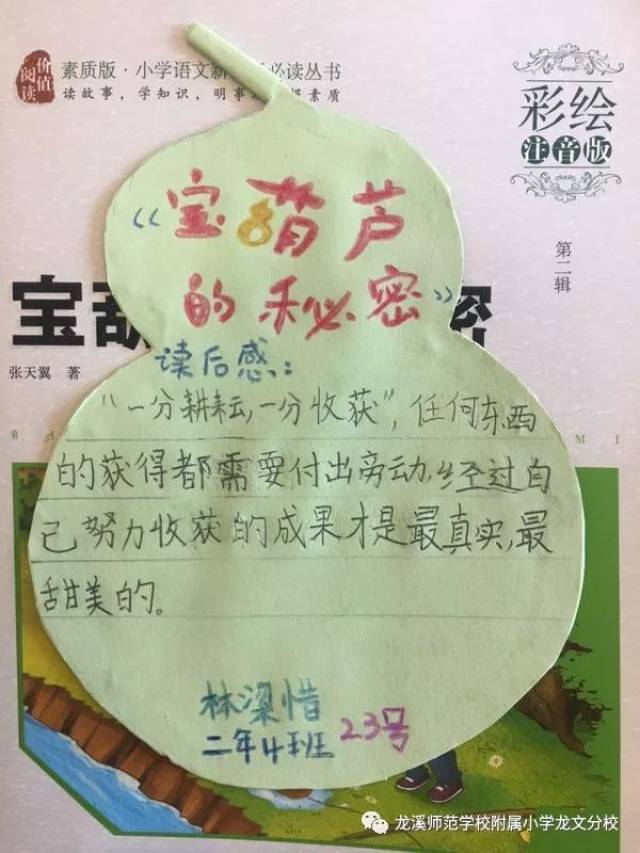 价值阅读
素质版·小学语文新
必读丛书
读故事，学知识，明事
素质
彩绘
注音版
第二辑
张天翼 著
《宝葫芦
的秘密》
读后感：
“一分耕耘，一分收获”，任何东西
的获得都需要付出劳动，经过自
己努力收获的成果才是最真实，最
甜美的。
林梁惜
二年4班 23号
龙溪师范学校附属小学龙文分校